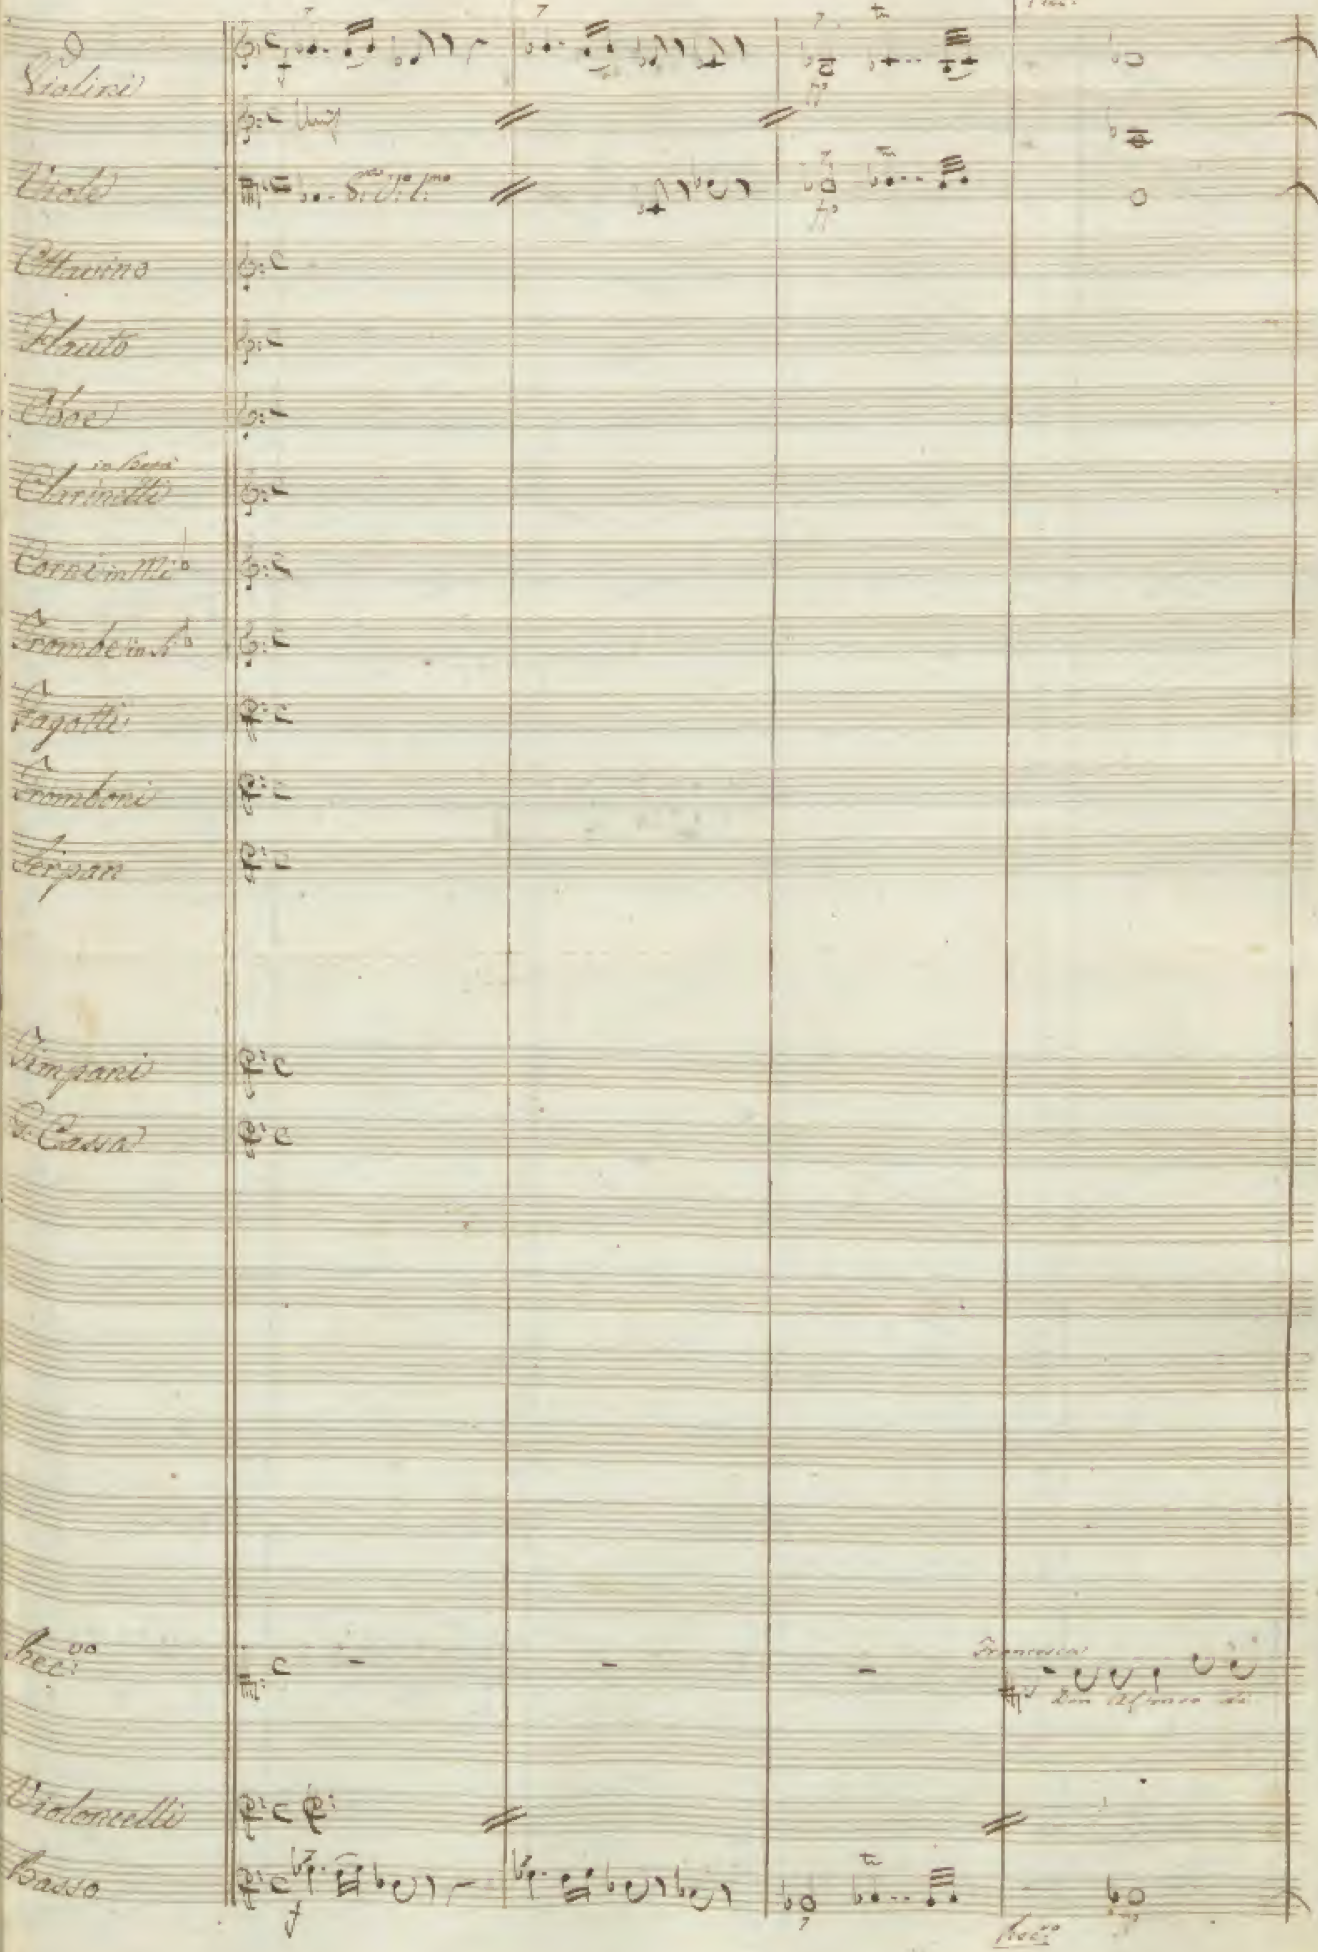 Violini
Unis
Viole
Ottavino
Flauto
Oboe
Clarinetti
Corni in Mi b
Trombe in Si b
Fagotti
Tromboni
Serpan
Timpani
G. Cassa
Rec:vo
Francesca
Don Alfonso di
Violoncelli
Basso
Rec:vo